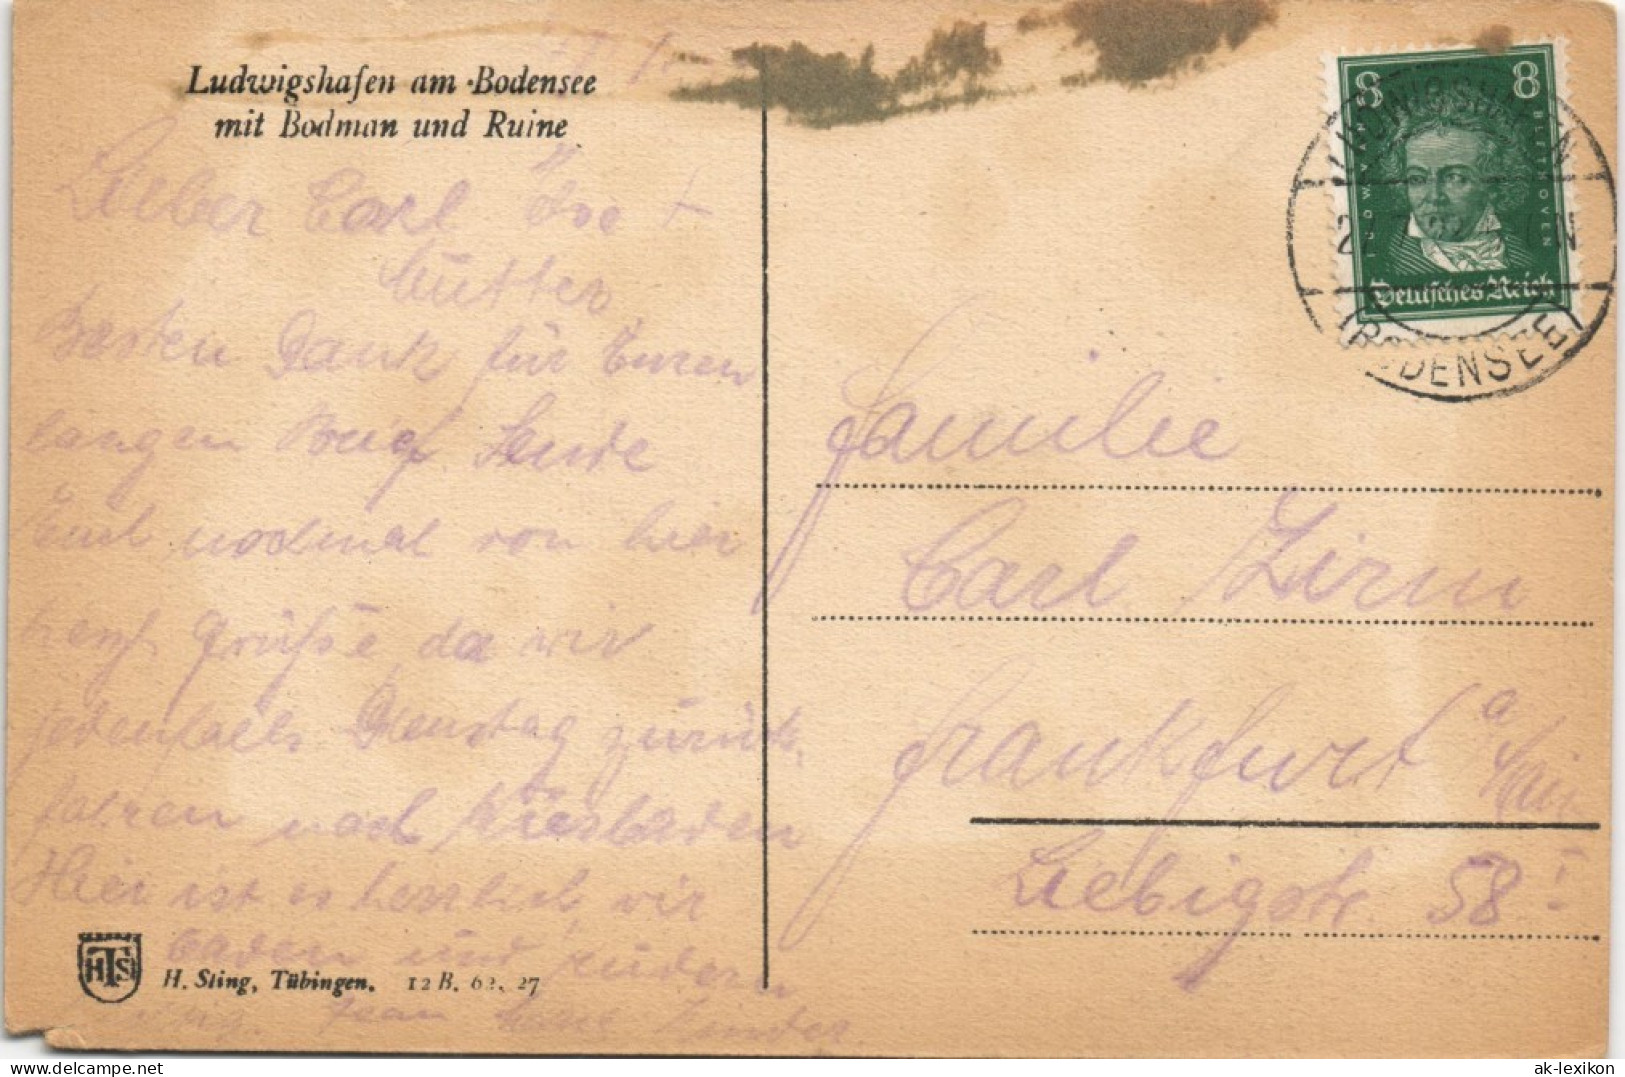 Ludwigshafen am Bodensee
mit Bodman und Ruine
Lieber Carl Ise +
Mutter
Besten Dank für Euren
langen Brief Sende
Euch nochmal von hier
herzl. Grüße, da wir
jedenfalls Dienstag zurück
fahren nach Wiesbaden
Hier ist es herrlich, wir
baden und rudern
Kinder
H. Sting, Tübingen. 12 B. 62. 27
HTS
8 8
LUDWIG VAN BEETHOVEN
Deutsches Reich
LUDWIGSHAFEN
(BODENSEE)
Familie
Carl Zirm
Frankfurt a
Main
Liebigstr 58 I
ak-lexikon